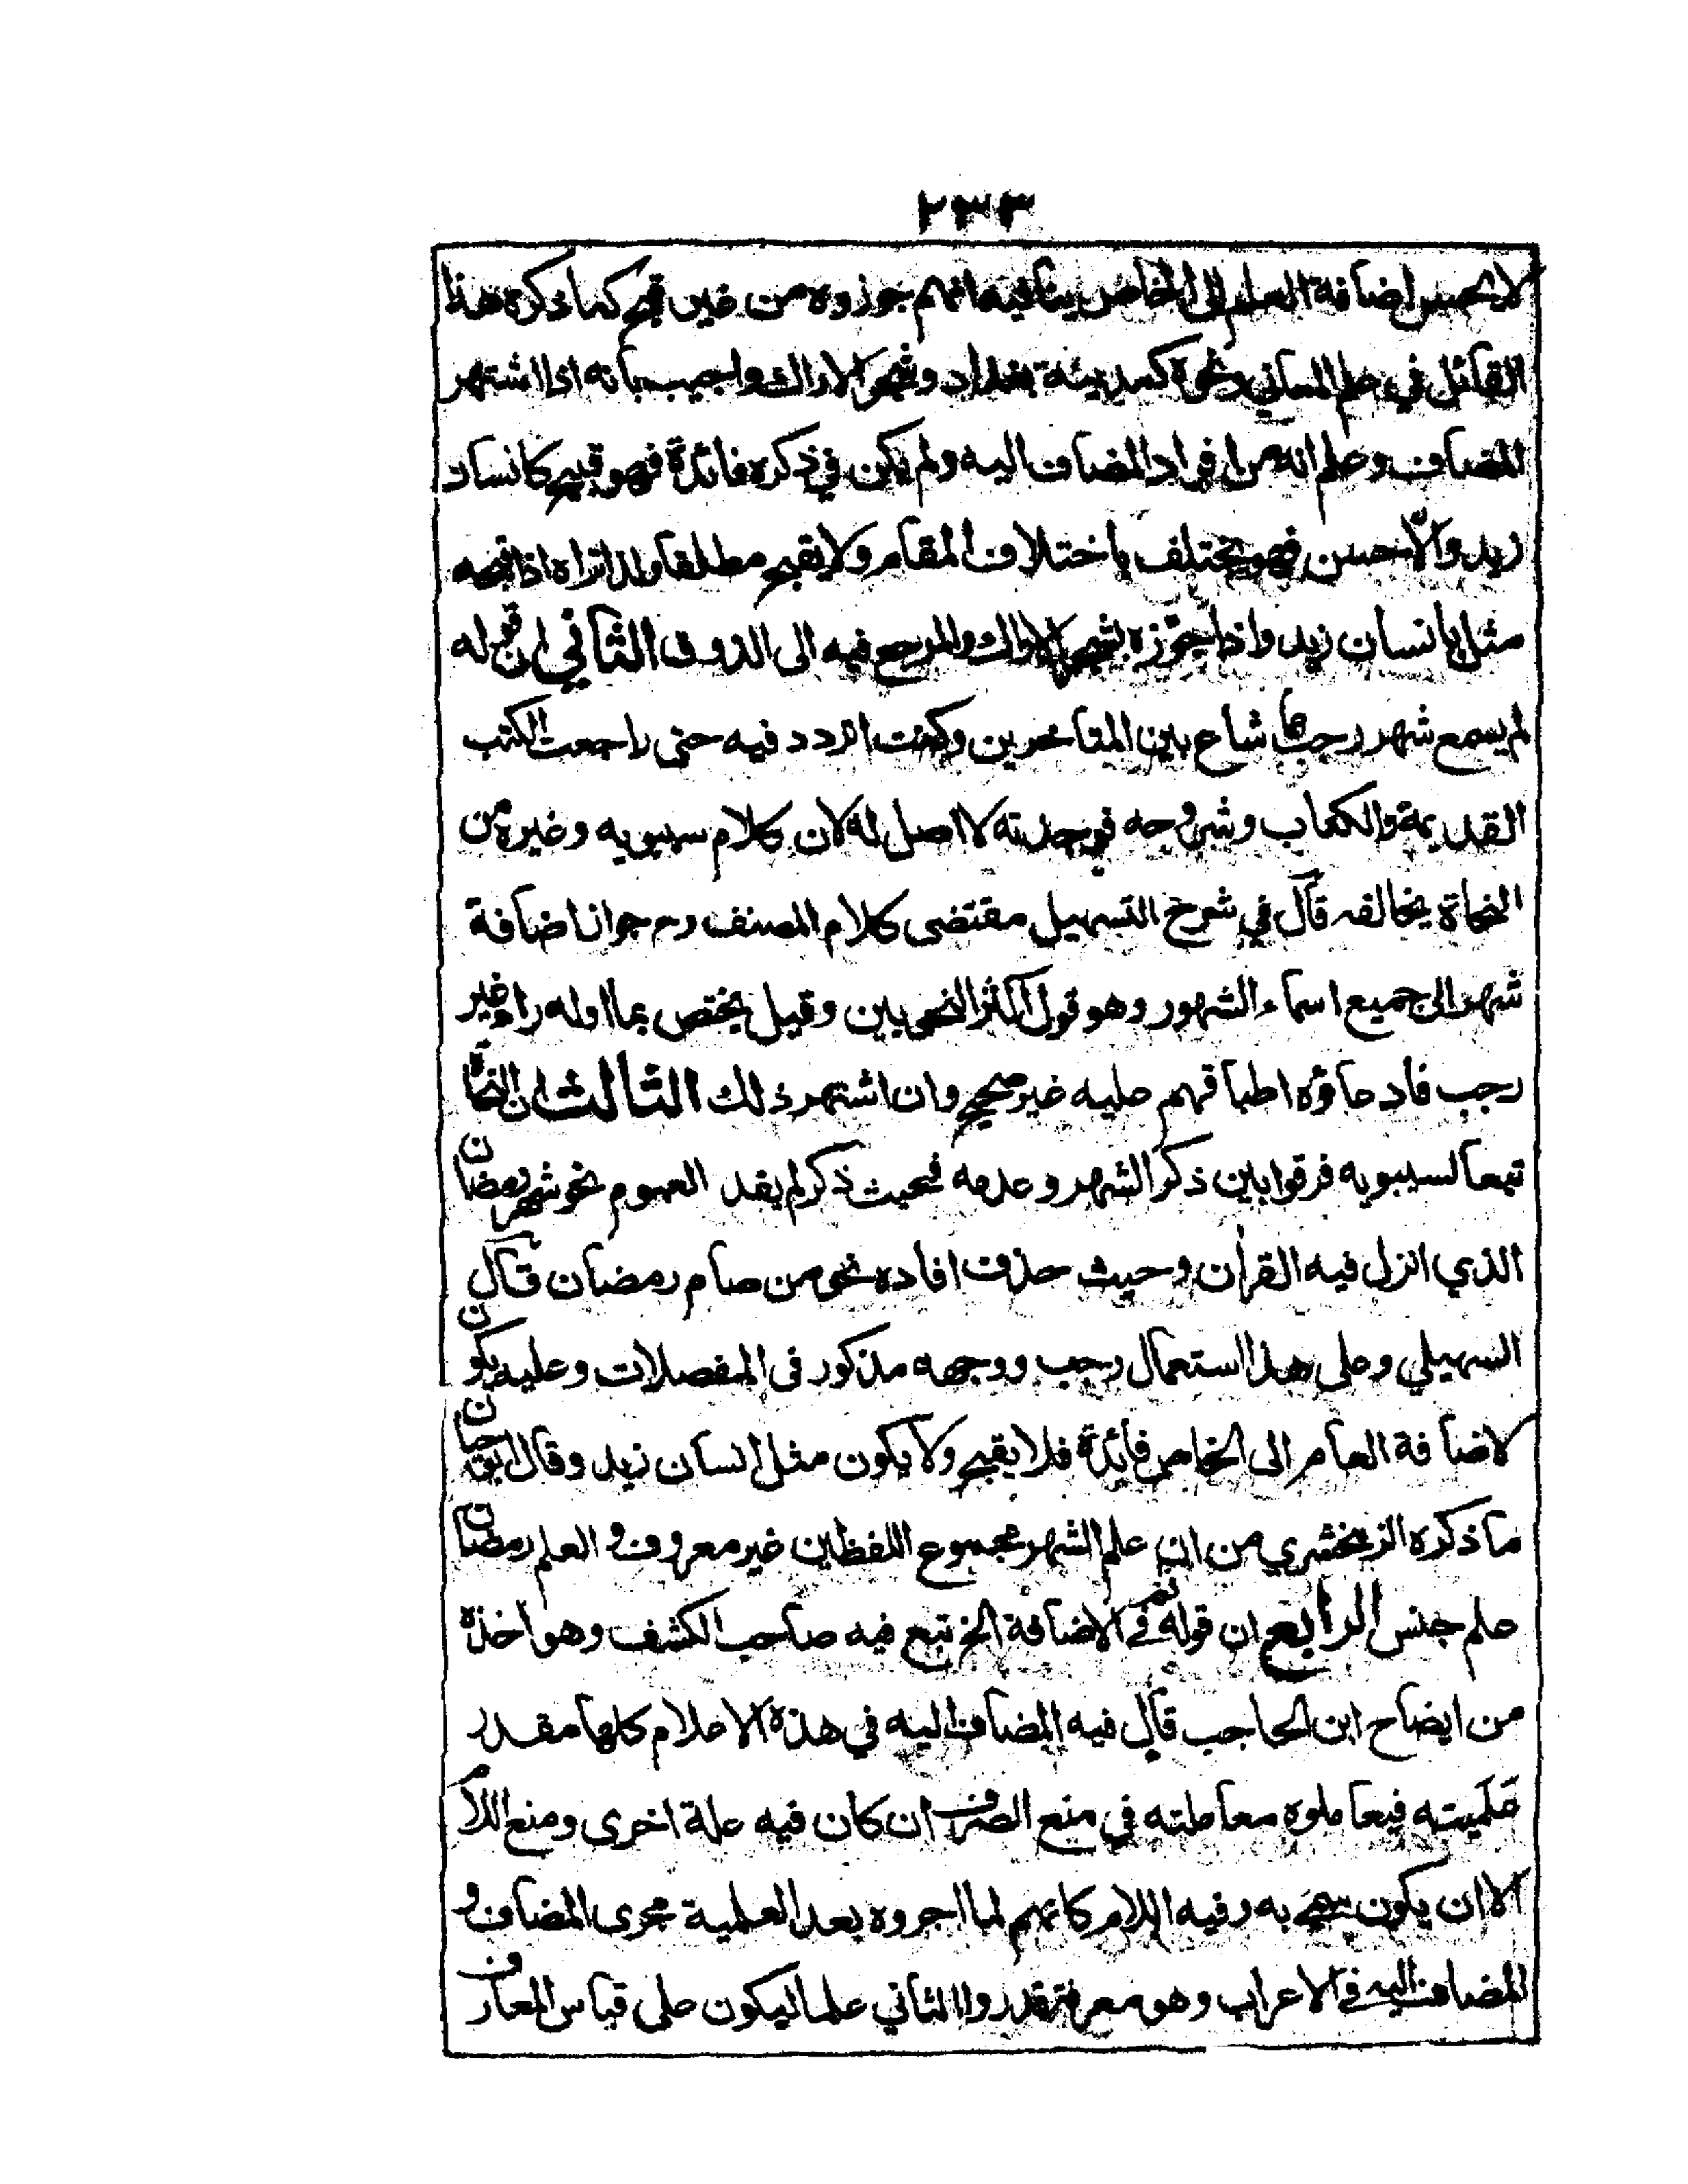 ٢٣٣
لا يحسن اضافة العام الى الخاص ينافيه انهم جوزوه من غير قبح كما ذكره هذا
القائل في علم المعاني ونحوه كمدينة بغداد وشجر الاراك واجيب بانه اذا اشتهر
المضاف وعلم انه من افراد المضاف اليه ولم يكن في ذكره فائدة فهو قبيح كانسان
زيد والا حسن فهو يختلف باختلاف المقام ولا يقبح مطلقا ولذا تراه اذا قبحه
مثل بانسان زيد واذا جوّزه بشجر الاراك والمرجع فيه الى الذوق الثاني ان قوله
لم يسمع شهر رجب مما شاع بين المتاخرين وكنت اتردد فيه حتى راجعت الكتب
القديمة والكتاب وشروحه فوجدته لا اصل له لان كلام سيبويه وغيره من
النحاة يخالفه قال في شرح التسهيل مقتضى كلام المصنف رح جواز اضافة
شهر الى جميع اسماء الشهور وهو قول اكثر النحويين وقيل يختص بما اوله راء غير
رجب فادعاؤه اطباقهم عليه غير صحيح وان اشتهر ذلك الثالث ان النحاة
تبعا لسيبويه فرقوا بين ذكر الشهر وعدمه فحيث ذكر لم يفد العموم نحو شهر رمضان
الذي انزل فيه القرأن وحيث حذف افاده نحو من صام رمضان قال
السهيلي وعلى هذا استعمال رجب ووجهه مذكور فى المفصلات وعليه يكون
لاضافة العام الى الخاص فائدة فلا يقبح ولا يكون مثل انسان زيد وقال ابو حيان
ما ذكره الزمخشري من ان علم الشهر مجموع اللفظين غير معروف و العلم رمضان
علم جنس الرابع ان قوله ثم في الاضافة الخ تبع فيه صاحب الكشف وهو اخذه
من ايضاح ابن الحاجب قال فيه المضاف اليه في هذه الاعلام كلها مقدر
علميته فيعاملوه معاملته في منع الصرف ان كان فيه علة اخرى ومنع اللام
الا ان يكون سمي به وفيه اللام كانهم لما اجروه بعد العلمية مجرى المضاف و
المضاف اليه في الاعراب وهو معرفة قدروا الثاني علما ليكون على قياس المعارف